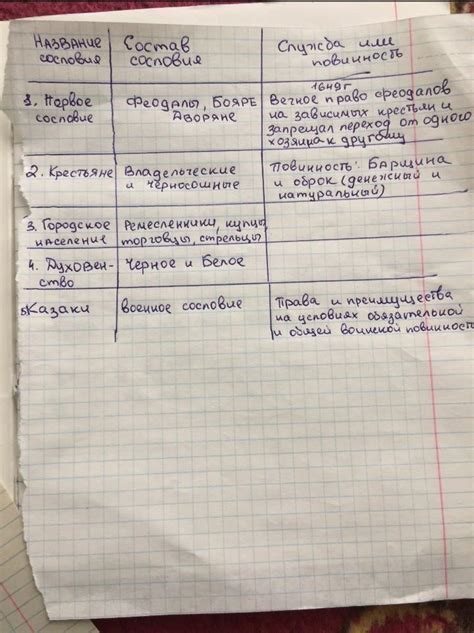 Название сословия
Состав сословия
Служба или повинность
1. Первое сословие
Феодалы, Бояре Дворяне
1649г
Вечное право феодалов
на зависимых крестьян и
запрещал переход от одного
хозяина к другому
2. Крестьяне
Владельческие
и черносошные
Повинность: Барщина
и оброк (денежный и
натуральный)
3. Городское
население
Ремесленники, купцы,
торговцы, стрельцы
4. Духовен-
ство
Черное и Белое
5. Казаки
военное сословие
Права и преимущества
на условиях обязательной
и общей воинской повинност